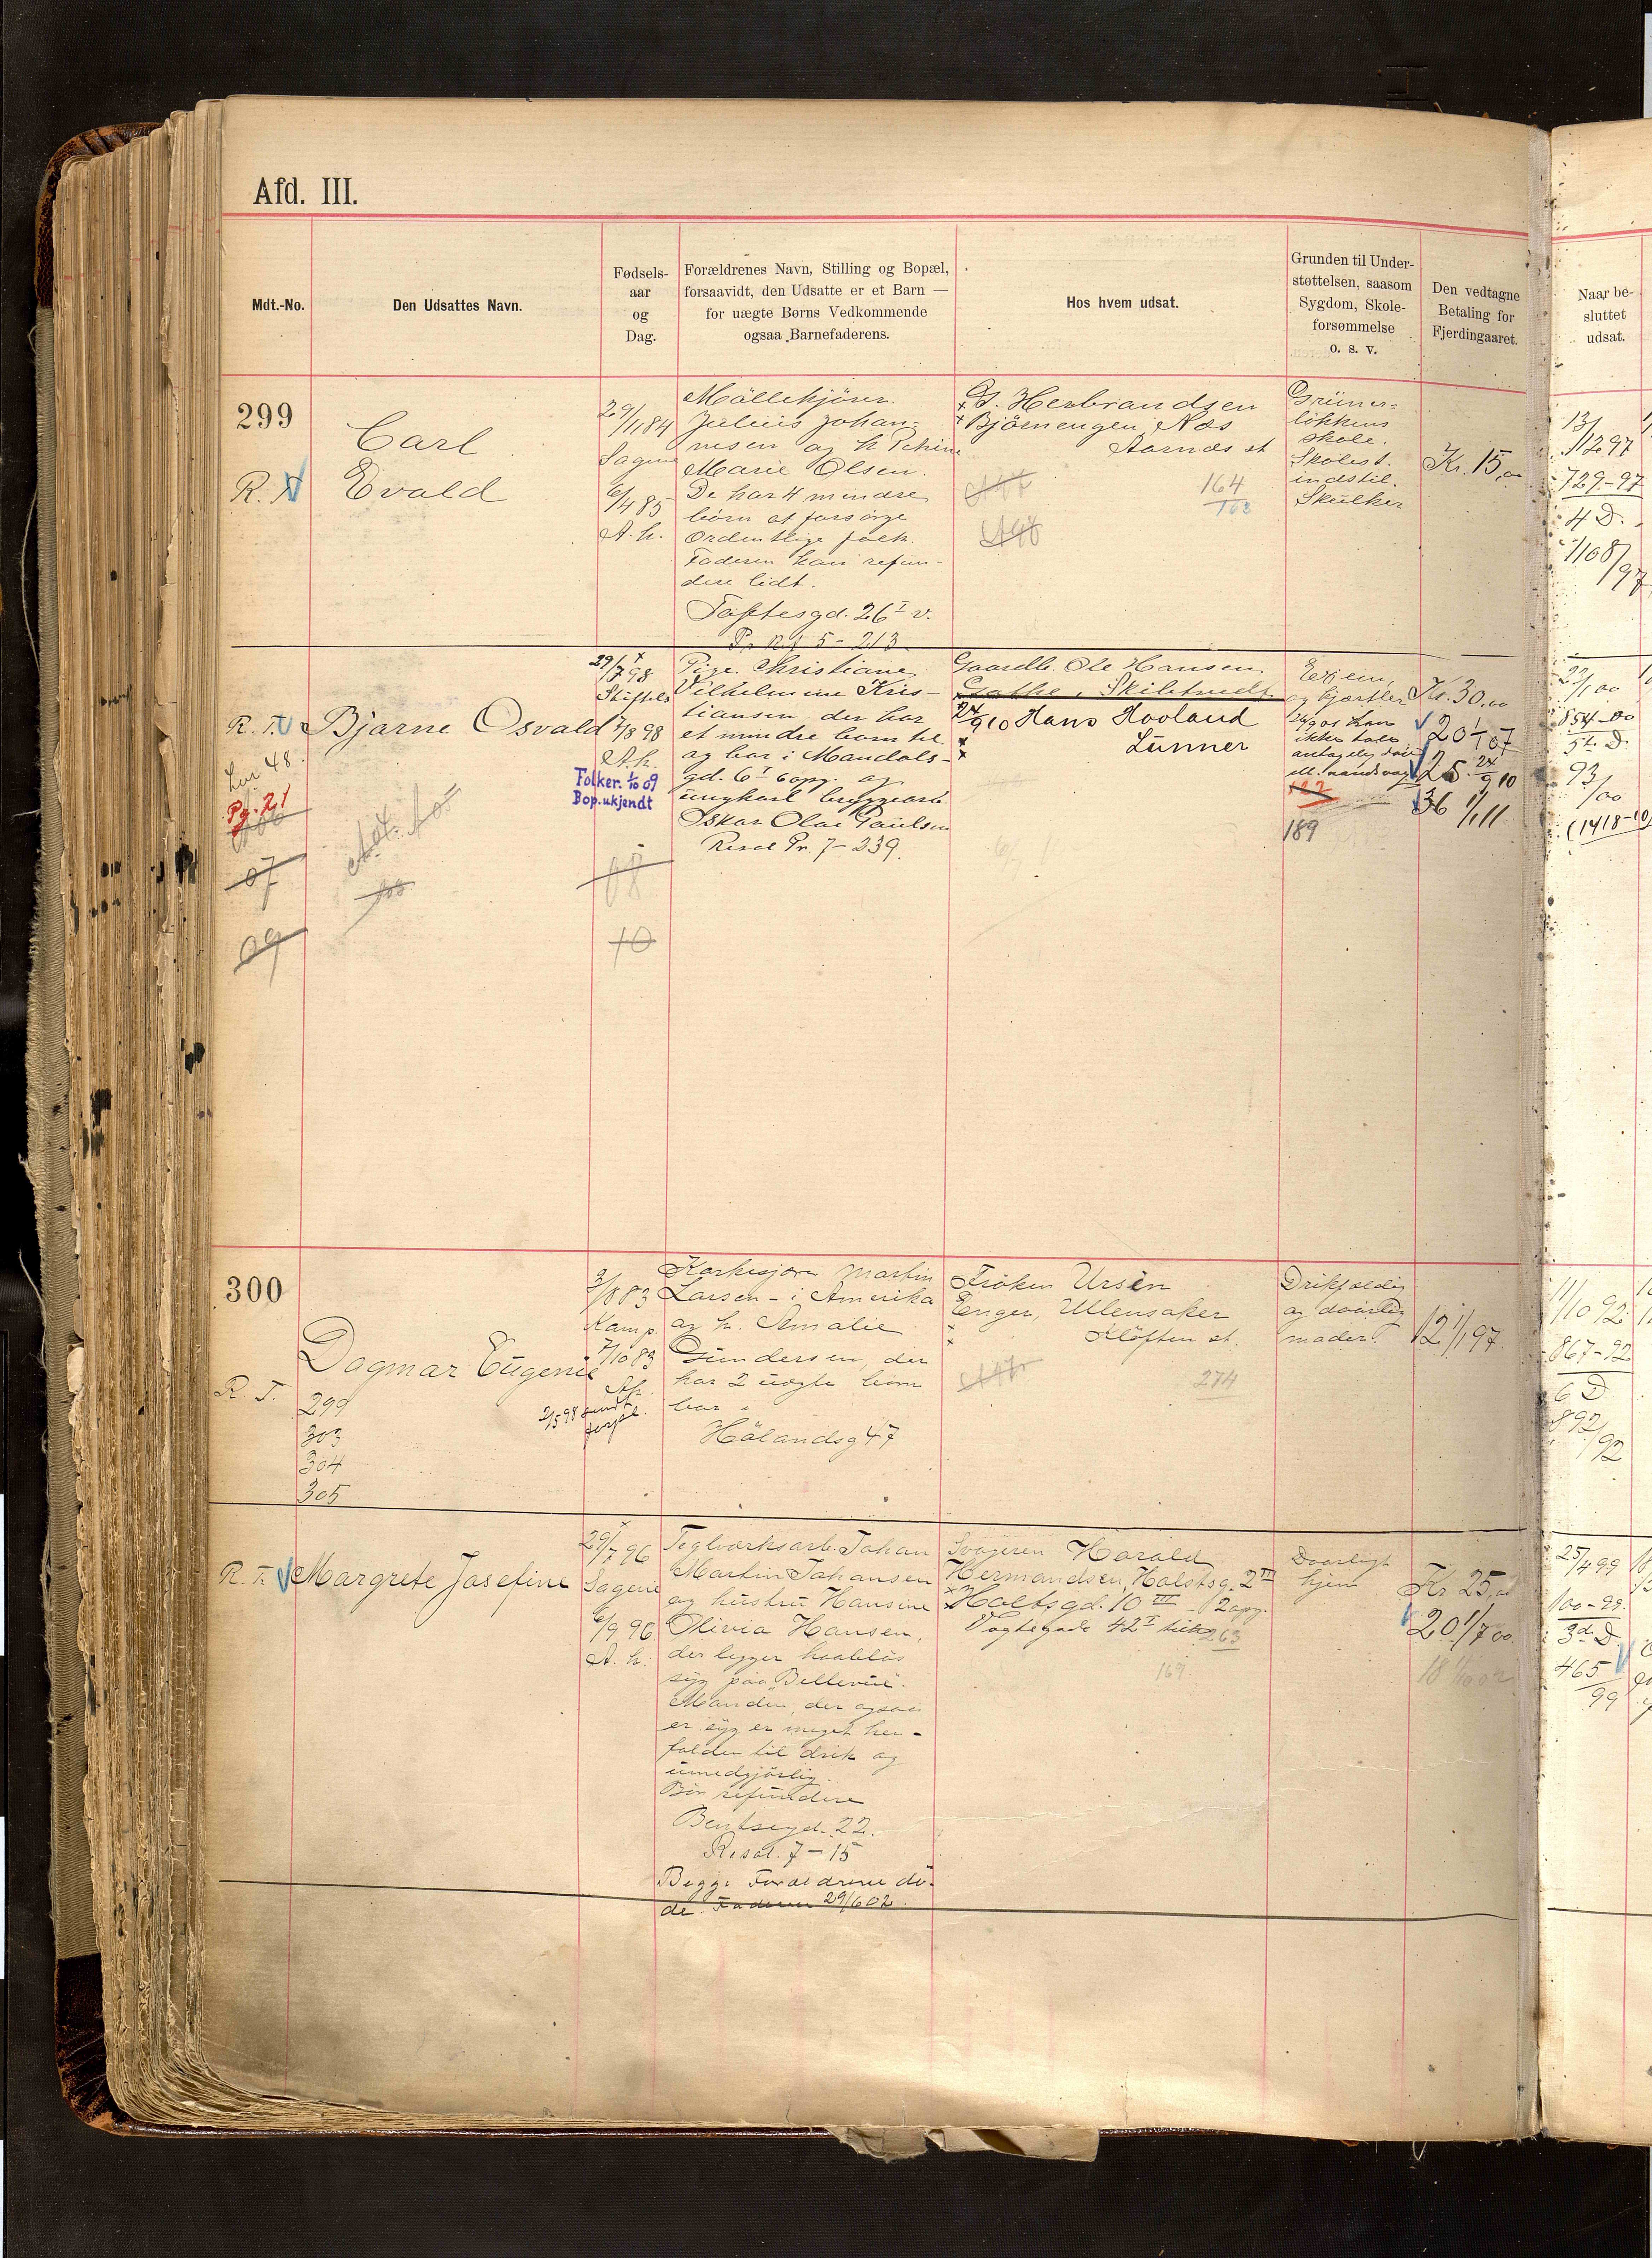 Afd. III.
Mdt.-No.
Den Udsattes Navn.
Fødsels-
aar
og
Dag.
Forældrenes Navn, Stilling og Bopæl,
forsaavidt, den Udsatte er et Barn —
for uægte Børns Vedkommende
ogsaa Barnefaderens.
Hos hvem udsat.
Grunden til Under-
støttelsen, saasom
Sygdom, Skole-
forsømmelse
o. s. v.
Den vedtagne
Betaling for
Fjerdingaaret.
Naar be-
sluttet
udsat.
299
Carl
Evald
29/1 84
Sagene
6/4 85
A. h.
Møllekjører
Julius Johan-
nesen og h
Marie Olsen.
De har 4 mindre
børn at forsørge
Ordentlige folk.
Faderen kan refun-
dere lidt.
Toftesgd. 26 I v.
Pr. Ref 5 - 213
Herbrandsen
Bjørnengen, Næs
Aarnæs st
164
103
Grüner-
løkkens
skole.
Skolest.
indstil.
Skulker
Kr. 15,00
13/11 97
729-97
4 D.
1108/97
R. T. Bjarne Osvald
Lnr 48.
Pg. 21
07
09
08
10
29/7 98
7/8 98
A. h.
Folker. 1/10 09
Bop. ukjendt
Pige Kristiane
Vilhelmine Kris-
tiansen der har
et mindre barn til
og bor i Mandals-
gd. 6 I opg. og
ungkarl bryggearb
Oskar Olai Paulsen
Resol Pr. 7 - 239.
Gaardb. Ole Hansen
24/9 10 Hans Hovland
Lunner
189
Kr. 30.00
20 1/1 07
25. 24/9 10
36 1/1 11
854-00
5t. D.
93/00
(1418-10)
300
Dagmar Eugenie
R. T.
299
303
304
305
3/8 83
Kamp.
7/10 83
2/5 98
Martin
Larsen - i Amerika
og h. Amalie
Gundersen, der
har 2 uægte børn
bor i
Hølandsg 47
Frøken Ursin
Tenger, Ullensaker
Kløften st.
274
Drikfældig
og daarlig
moder.
12 1/1 97
11/10 92
867-92
6 D
892/92
R. T. Margrete Josefine
29/7 96
Sagene
6/9 96
A. h.
Teglværksarb. Johan
Martin Johansen
og hustru Hansine
Olivia Hansen,
der ligger haabløs
syg paa "Bellevue".
Manden, der ogsaa
er syg er meget hen-
falden til drik og
umedgjørlig.
Bør refundere
Bentsegd. 22.
Resol. 7 - 15
Begge Forældrene dø-
de. Faderen 29/6 02.
Svogeren Harald
Hermandsen, Holstsg. 2 III
Holtsgd. 10 III 2 opg.
Vogtsgade 42 I
263
169.
Daarligt
hjem
Kr. 25,00
20 1/7 00.
25/4 99
100-99.
3d D
465/99